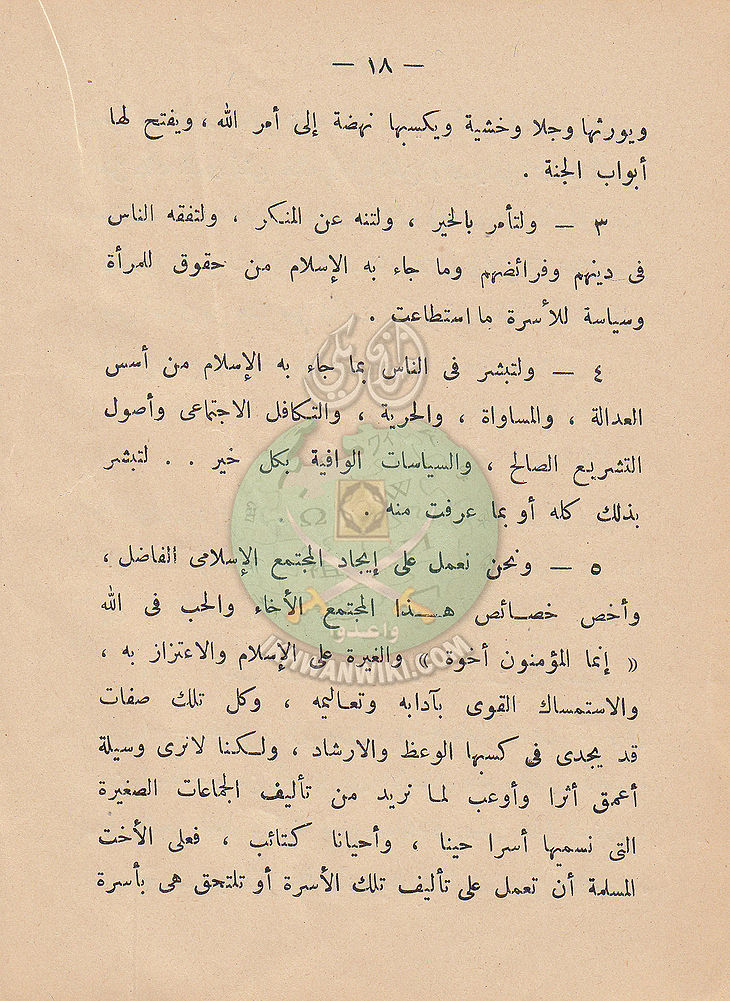 — ١٨ —
ويورثها وجلا وخشية ويكسبها نهضة إلى أمر الله ، ويفتح لها
أبواب الجنة .
٣ — ولتأمر بالخير ، ولتنه عن المنكر ، ولتفقه الناس
فى دينهم وفرائضهم وما جاء به الإسلام من حقوق للمرأة
وسياسة للأسرة ما استطاعت .
٤ — ولتبشر فى الناس بما جاء به الإسلام من أسس
العدالة ، والمساواة ، والحرية ، والتكافل الاجتماعى وأصول
التشريع الصالح ، والسياسات الوافية بكل خير . . لتبشر
بذلك كله أو بما عرفت منه .
٥ — ونحن نعمل على إيجاد المجتمع الإسلامى الفاضل ،
وأخص خصائص هذا المجتمع الأخاء والحب فى الله
« إنما المؤمنون أخوة » والغيرة على الإسلام والاعتزاز به ،
والاستمساك القوى بآدابه وتعاليمه ، وكل تلك صفات
قد يجدى فى كسبها الوعظ والارشاد ، ولكنا لانرى وسيلة
أعمق أثرا وأوعب لما نريد من تأليف الجماعات الصغيرة
التى نسميها أسرا حينا ، وأحيانا كتائب ، فعلى الأخت
المسلمة أن تعمل على تأليف تلك الأسرة أو تلتحق هى بأسرة
وأعدوا
IKHWANWIKI.COM